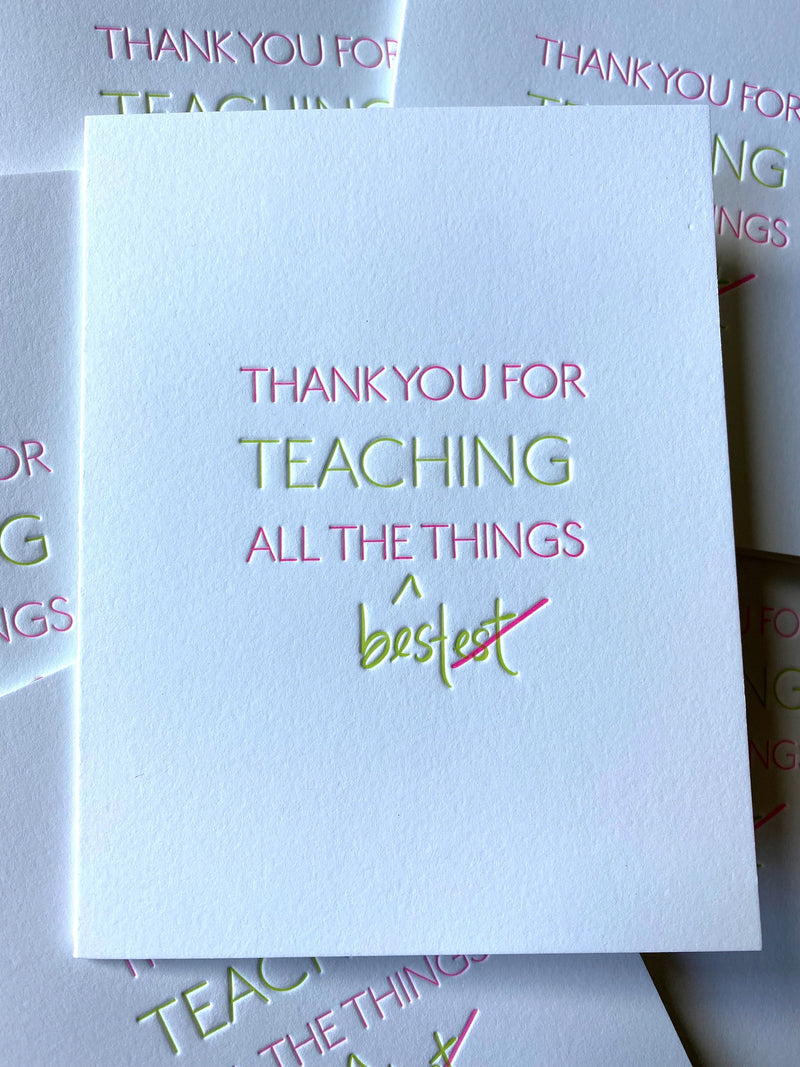 THANK YOU FOR
TEACHING
THANK YOU FOR
TEACHING
THINGS
THANK YOU FOR
TEACHING
ALL THE THINGS
^
bestest
FOR
THINGS
TEACHING
THE THINGS